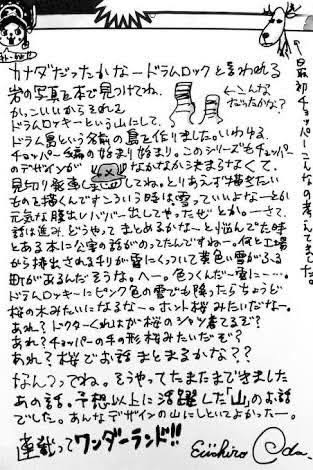 カナダだったかなードラムロックと言われる
岩の写真を本で見つけてね、
かっこいいからそれを
ドラムロッキーという山にして、
ドラム島という名前の島を作りました。いわゆる、
チョッパー編の始まり始まり。このシリーズもチョッパー
のデザインがなかなか決まらなくて、
見切り発進してね。とりあえず描きたい
ものを描くんですこういう時は雪っていいよなーとか
元気な腹出しババー出してやったぜとか。…さて、
話は進み、どうやってまとめるかなーと悩んでた時
とある本に公害の話がのってたんですねー。何と工場
から排出されるチリが雪にくっついて黄色い雪がふる
町があるんだそうな。へー。色つくんだー雪に…。
ドラムロッキーにピンク色の雪でも降ったらちょうど
桜の木みたいになるなー。ホント桜みたいだなー。
あれ?ドクターくれはが桜のシャツ着てるぞ?
あれ?チョッパーの手の形桜みたいだぞ?
あれ?桜でお話まとまるかな??
なんつってね。そうやってたまたまできました
あの話。予想以上に活躍した「山」のお話
でした。あんなデザインの山にしといてよかったー。
連載ってワンダーランド!!
Eiichiro Oda
←こんな
だったかな?
最初チョッパーこんなの考えてました。